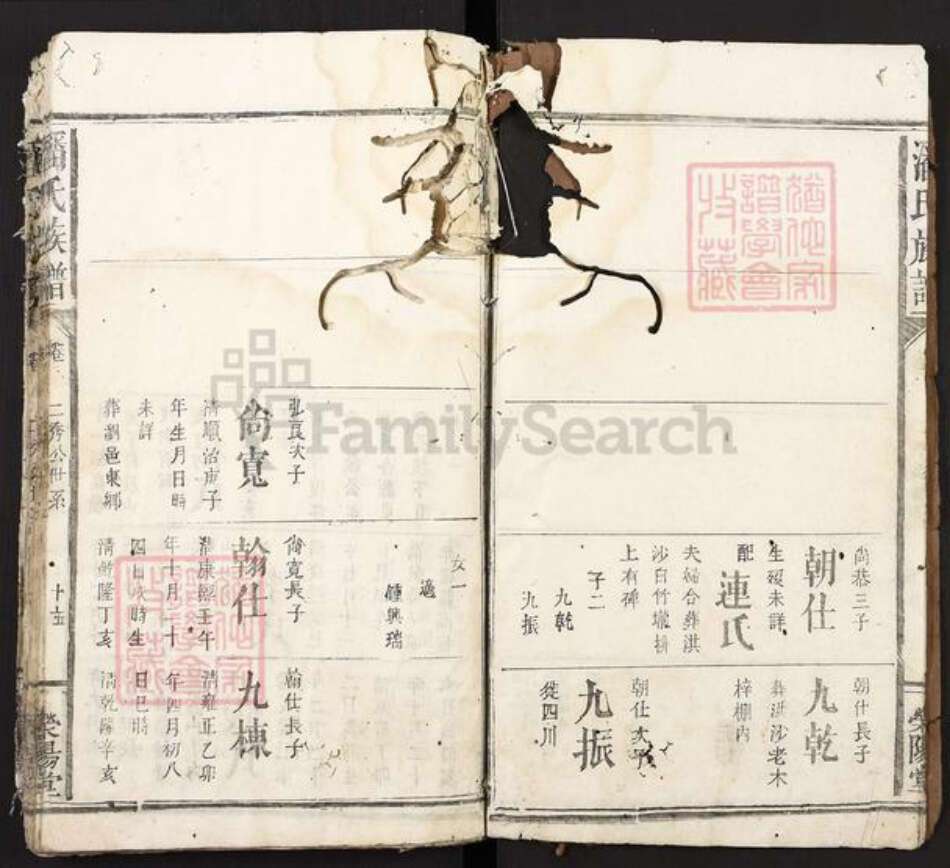 潘氏族譜
榮陽堂
尚恭三子
朝仕
生歿未詳
配
連氏
夫婦合葬洪
沙白竹壠
上有碑
子二
九乾
九振
朝仕長子
九乾
葬洪沙老木
梓棚內
朝仕次子
九振
徙四川
弘良次子
尚寬
清順治庚子
年生月日時
未詳
葬瀏邑東鄉
女一
適
鍾興瑞
尚寬長子
翰仕
清康熙壬午
年十月二十
四日戌時生
清乾隆丁亥
翰仕長子
九棟
清雍正乙卯
年四月初八
日巳時
清乾隆辛亥
潘氏族譜
卷
二秀公世系
十五
榮陽堂
FamilySearch
譜學會
收藏